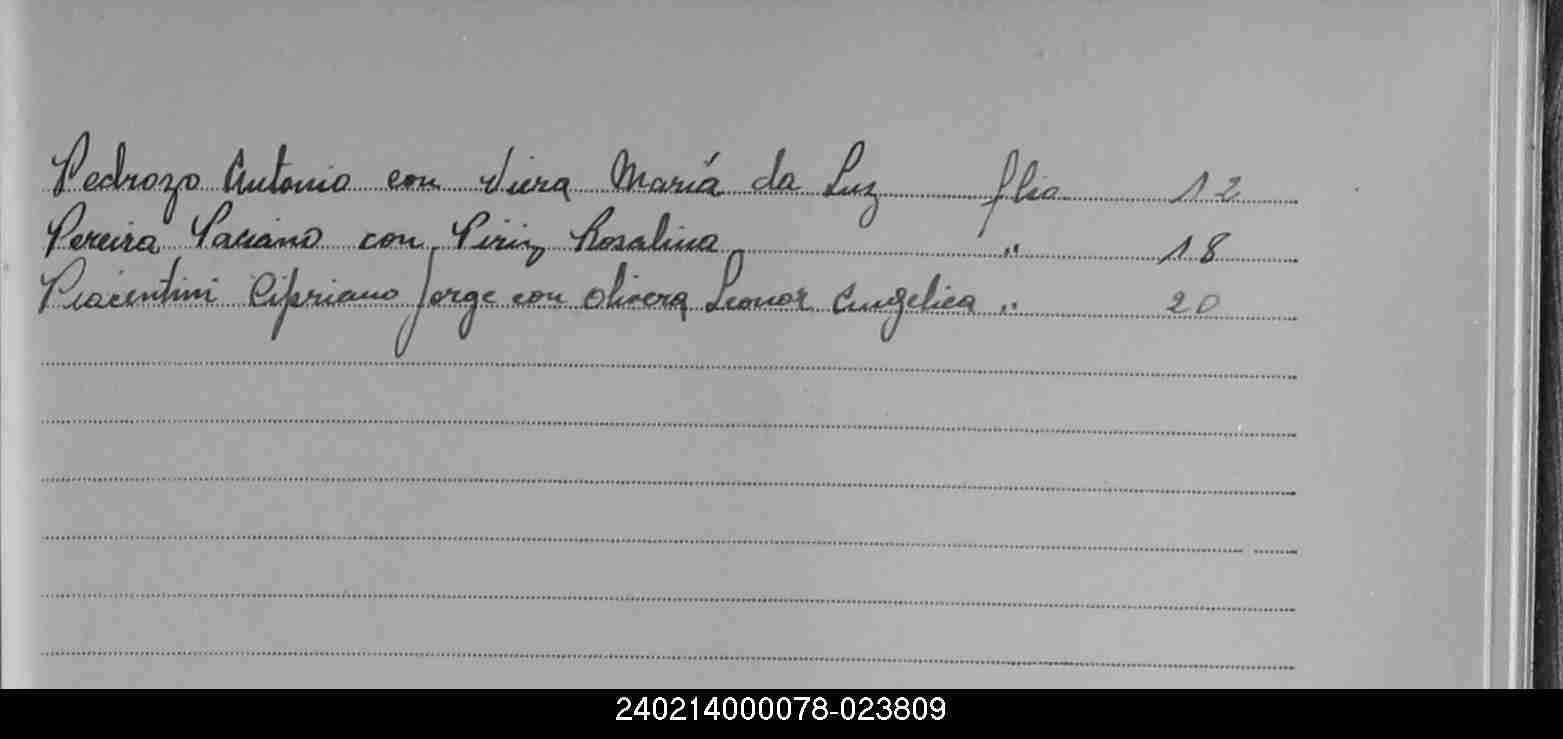 Pedrozo Antonio con Viera Mariá da Luz flio 12
Pereira Paciano con Piriz Rosalina " 18
Piacentini Cipriano Jorge con Olivera Leonor Angelica " 20
240214000078-023809